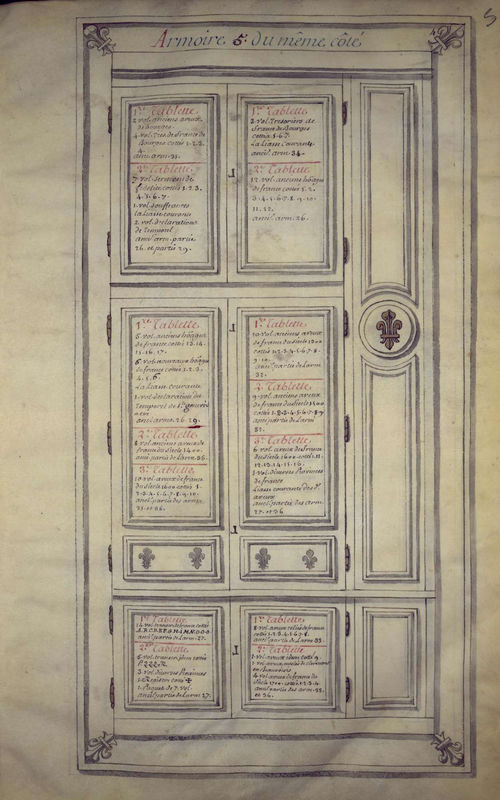 5
4
Armoire 5. du même côté
1re Tablette
2. vol. anciens aveux
de Bourges
4. vol. Tres. de france de
Bourges cottés 1. 2. 3.
4.
anc. arm. 31.
2e Tablette
7. vol. serment de
fidelité cottés 1. 2. 3.
4. 5. 6. 7.
1. vol. souffrances
la Liasse courante
2. vol. declarations
de temporel
anc. arm. partie
26. et partie 29.
1re Tablette
2. vol. Tresoriers de
france de Bourges
cottés 5. 6.
La Liasse courante
anc. arm. 34.
2e Tablette
12. vol. anciens hõages
de france cottés 1. 2.
3. 4. 5. 6. 7. 8. 9. 10.
11. 12.
anc. arm. 26.
1re Tablette
5. vol. anciens hõages
de france cottés 13. 14.
15. 16. 17.
6. vol. nouveaux hõages
de france cottés 1. 2. 3.
4. 5. 6
La Liasse courante
1. vol. declarations du
Temporel de
anc. arm. 26. 29.
2e Tablette
8. vol. anciens aveux de
france du siecle 1400.
anc. partie de l'arm. 35.
3e Tablette
10. vol. aveux de france
du siecle 1600 cottés 1.
2. 3. 4. 5. 6. 7. 8. 9. 10.
anc. partie des armes
35. et 36.
1re Tablette
10. vol. anciens aveux
de france du siecle 1300
cottés 1. 2. 3. 4. 5. 6. 7. 8.
9. 10.
anc. partie de l'arm
32.
2e Tablette
9. vol. anciens aveux
de france du siecle 1500
cottés 1. 2. 3. 4. 5. 6. 7. 8. 9
anc. partie de l'arm
32.
3e Tablette
6. vol. aveux de france
du siecle 1600. cottés 11.
12. 13. 14. 15. 16.
1. vol. diverses Provinces
de france
Liasse courante des d.
aveux
anc. partie des arm.
27. et 36
1re Tablette
14. vol. de france cottés
anc. partie de l'arm. 27.
2e Tablette
5. vol. cottés
3. vol. diverses Provinces
1. Registre cotté
1. Paquet de 7. vol.
anc. partie de l'arm. 27.
1re Tablette
8. vol. aveux de france
cottés 1. 2. 3. 4. 5. 6. 7. 8.
anc. partie de l'arm. 33.
2e Tablette
1. vol. aveux idem cotté 9.
1. vol. aveux
en Beauvoisis
4. vol. aveux de france du
siecle 1700. cottés 1. 2. 3. 4.
anc. partie des arm. 33.
et 36.